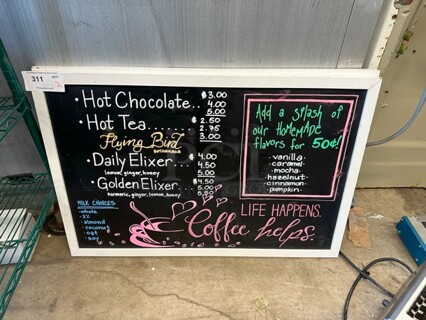 311
• Hot Chocolate.. $3.00
4.00
5.00
• Hot Tea..... $2.50
2.75
3.00
Flying Bird
BOTANICALS
• Daily Elixer... $4.00
lemon, ginger, honey 4.50
5.00
• Golden Elixer... $4.50
turmeric, ginger, lemon, honey 5.00
5.50
MILK CHOICES
• whole
• 2%
• almond
• coconut
• oat
• soy
Add a splash of
our HOMEMADE
flavors for 50¢!
vanilla
• caramel •
• mocha •
hazelnut •
• cinnamon •
pumpkin •
LIFE HAPPENS.
Coffee helps.